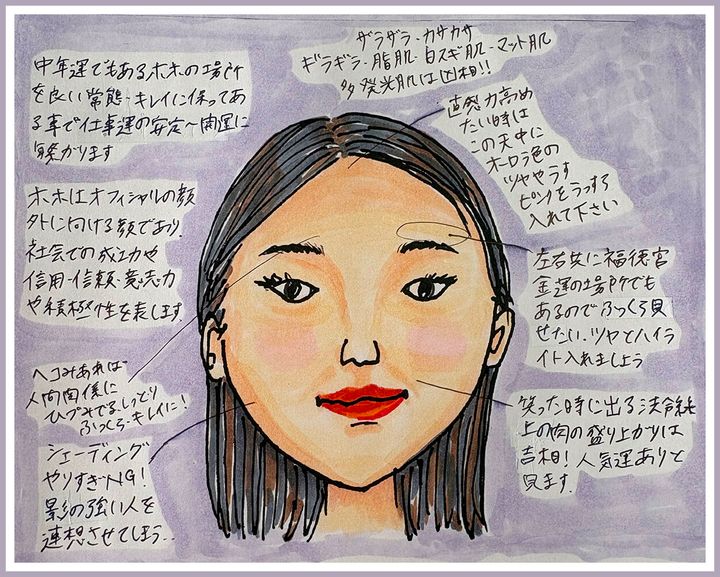 ザラザラ・カサカサ
ギラギラ・脂肌・白スギ肌・マット肌
多発光肌は凶相!!
中年運でもあるホホの場所
を良い常態・キレイに保ってあ
る事で仕事運の安定〜開運に
繋がります
直感力高め
たい時は
この天中に
オーロラ色の
ツヤやうす
ピンクをうっすら
入れて下さい
ホホはオフィシャルの顔
外に向ける顔であり
社会での成功や
信用・信頼・意志力
や積極性を表します。
左右共に福徳宮
金運の場所でも
あるのでふっくら見
せたい。ツヤとハイラ
イト入れましょう
ヘコみあれば
人間関係に
ひびみでる。しっとり
ふっくらキレイに!
笑った時に出る法令線
上の肉の盛り上がりは
吉相!人気運ありと
見ます。
シェーディング
やりすぎNG!
影の強い人を
連想させてしまう..